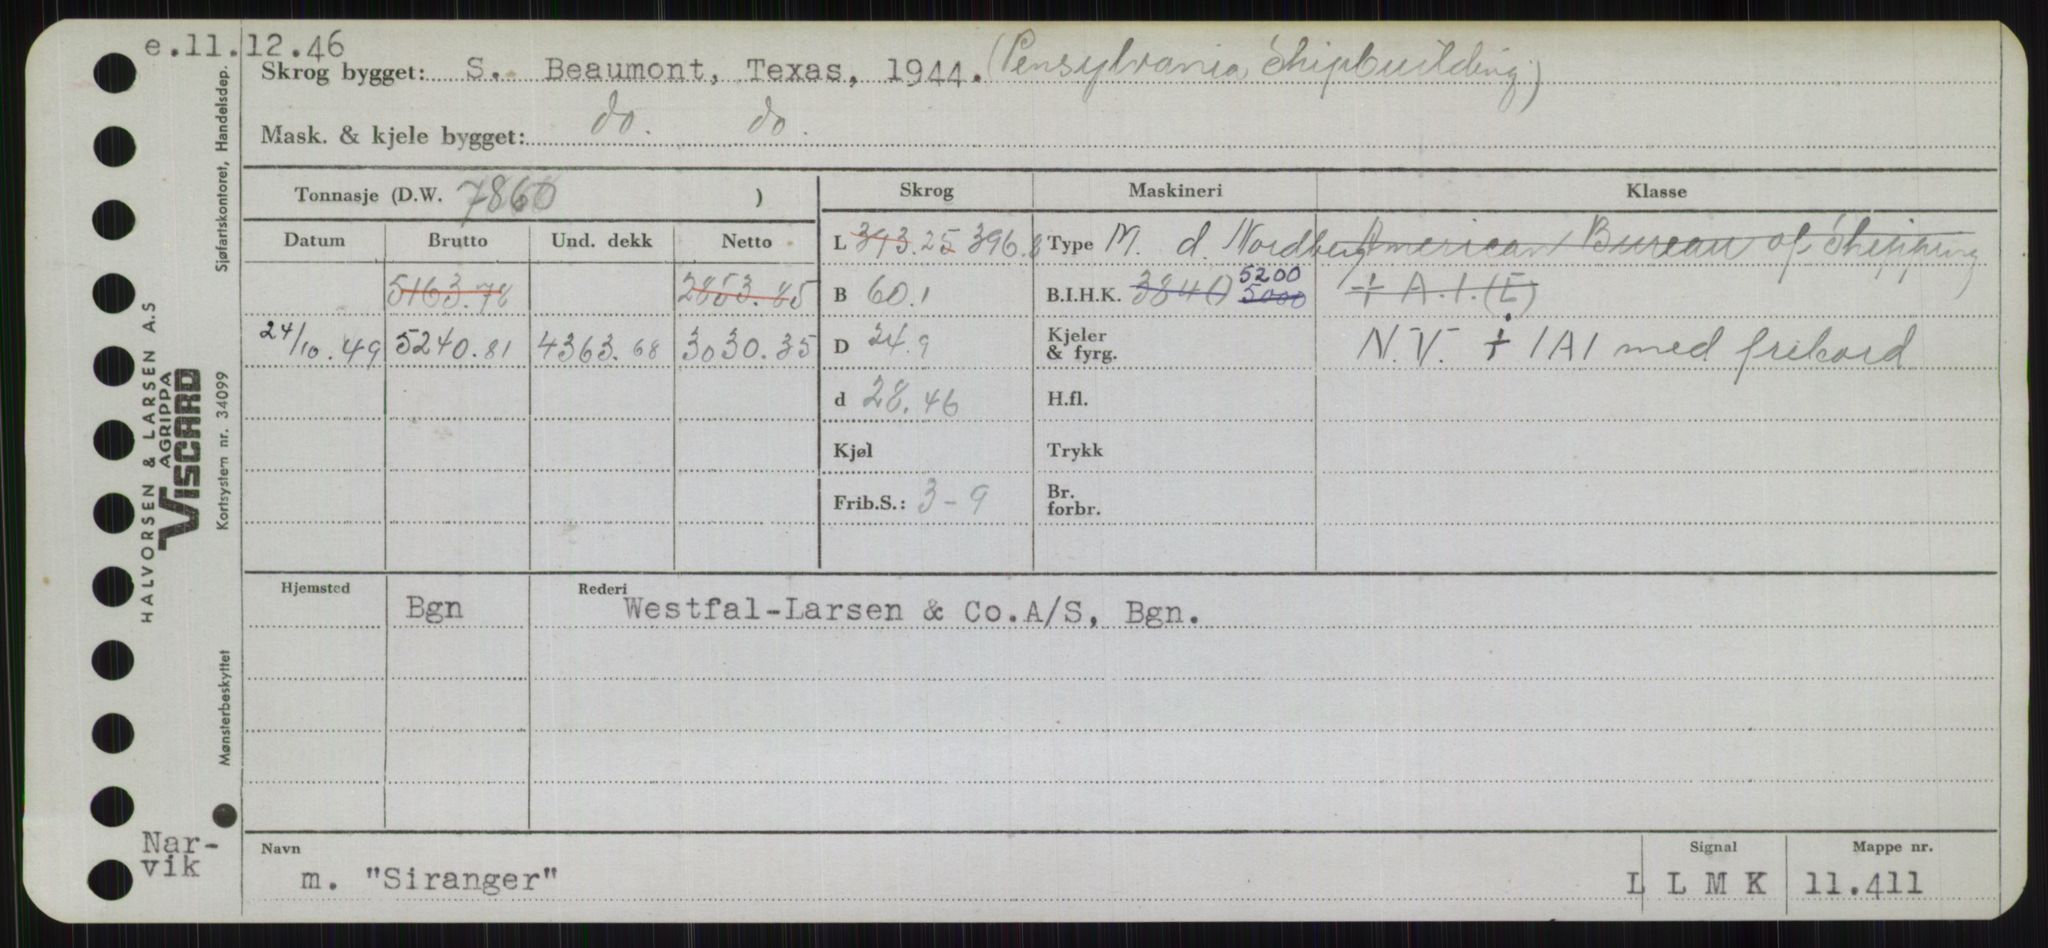 e.11.12.46
Skrog bygget: S. Beaumont, Texas, 1944. (Pensylvania Shipbuilding)
Mask. & kjele bygget: do. do.
Tonnasje (D.W. 7860 )
Datum Brutto Und. dekk Netto
5163.78 2853.85
24/10.49 5240.81 4363.68 3030.35
Skrog
L 393.25 396.8
B 60.1
D 24.9
d 28.46
Kjøl
Frib.S.: 3-9
Maskineri
Type M. d. Nordberg
B.I.H.K. 3840 5000 5200
Kjeler & fyrg.
H.fl.
Trykk
Br. forbr.
Klasse
American Bureau of Shipping
+ A.1.(E)
N.V. + 1A1 med fribord
Hjemsted Rederi
Bgn Westfal-Larsen & Co.A/S, Bgn.
Navn Signal Mappe nr.
m. "Siranger" L L M K 11.411
Nar-
vik
HALVORSEN & LARSEN A.S
AGRIPPA
VISCARD
Mønsterbeskyttet Kortsystem nr. 34099 Sjøfartskontoret, Handelsdep.